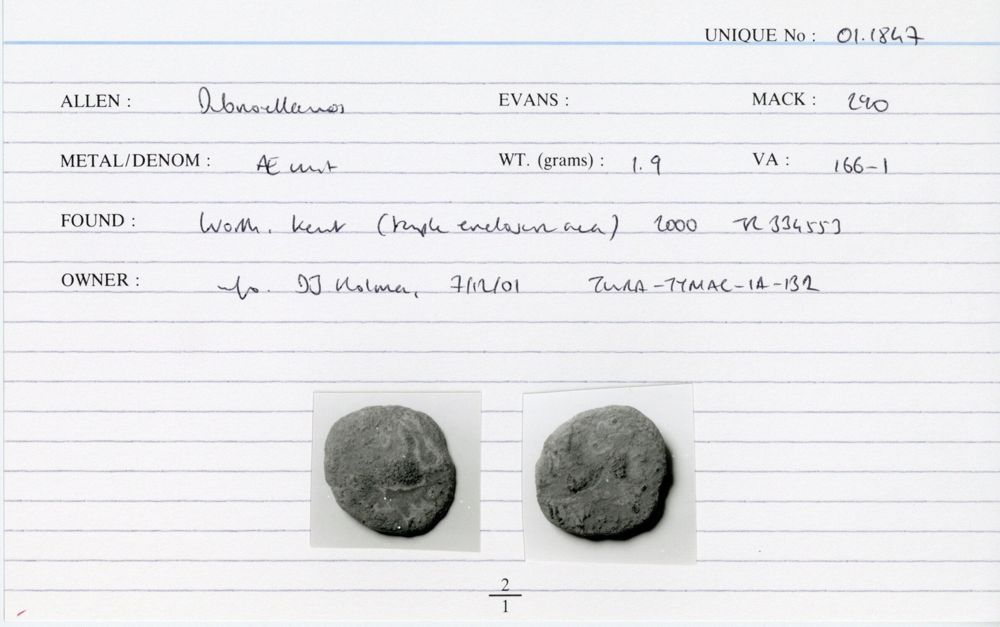 UNIQUE No : 01.1847
ALLEN : Dubnovellaunos EVANS : MACK : 290
METAL/DENOM : Æ unit WT. (grams) : 1.9 VA : 166-1
FOUND : Worth, Kent (temple enclosure area) 2000 TR 334553
OWNER : info. DJ Holman, 7/12/01
2
1